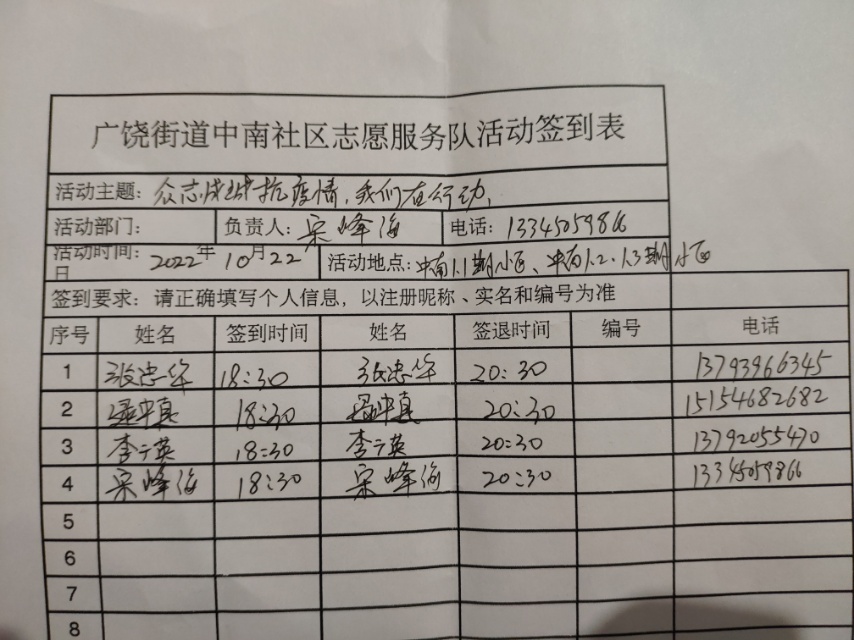 广饶街道中南社区志愿服务队活动签到表
活动主题：众志成城抗疫情，我们在行动，
活动部门： 负责人：宋峰海 电话：13345059866
活动时间：2022年10月22日 活动地点：中南1.1期小区、中南1.2、1.3期小区
签到要求：请正确填写个人信息，以注册昵称、实名和编号为准
序号 姓名 签到时间 姓名 签退时间 编号 电话
1 张忠华 18:30 张忠华 20:30 13793966345
2 18:30 20:30 15154682682
3 李云英 18:30 李云英 20:30 13792055470
4 宋峰海 18:30 宋峰海 20:30 13345059866
5
6
7
8